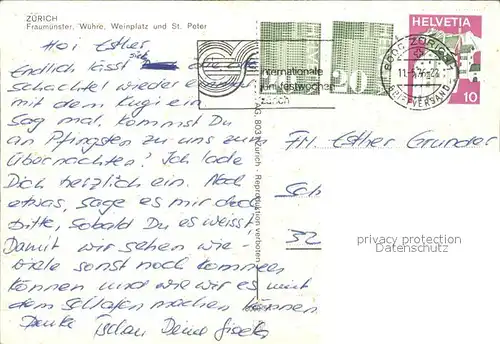 ZÜRICH
Fraumünster, Wühre, Weinplatz und St. Peter
Hoi Esther
Endlich lässt sich die alte
Schachtel wieder einmal
mit dem Kugi ein
Sag mal, kommst Du
an Pfingsten zu uns zum
Übernachten? Ich lade
Dich herzlich ein. Noch
etwas, sage es mir doch
bitte, sobald Du es weisst
Damit wir sehen wie-
viele sonst noch kommen
können und wie wir es mit
dem Schlafen machen können
Danke Tschau Deine Gisela
AG, 803 Zürich - Reproduktion verboten
internationale
juni festwochen
zürich
HELVETIA
20
HELVETIA
10
8000 ZÜRICH
BRIEFVERSAND
FM. Esther Grunder
Sch
32
privacy protection
Datenschutz